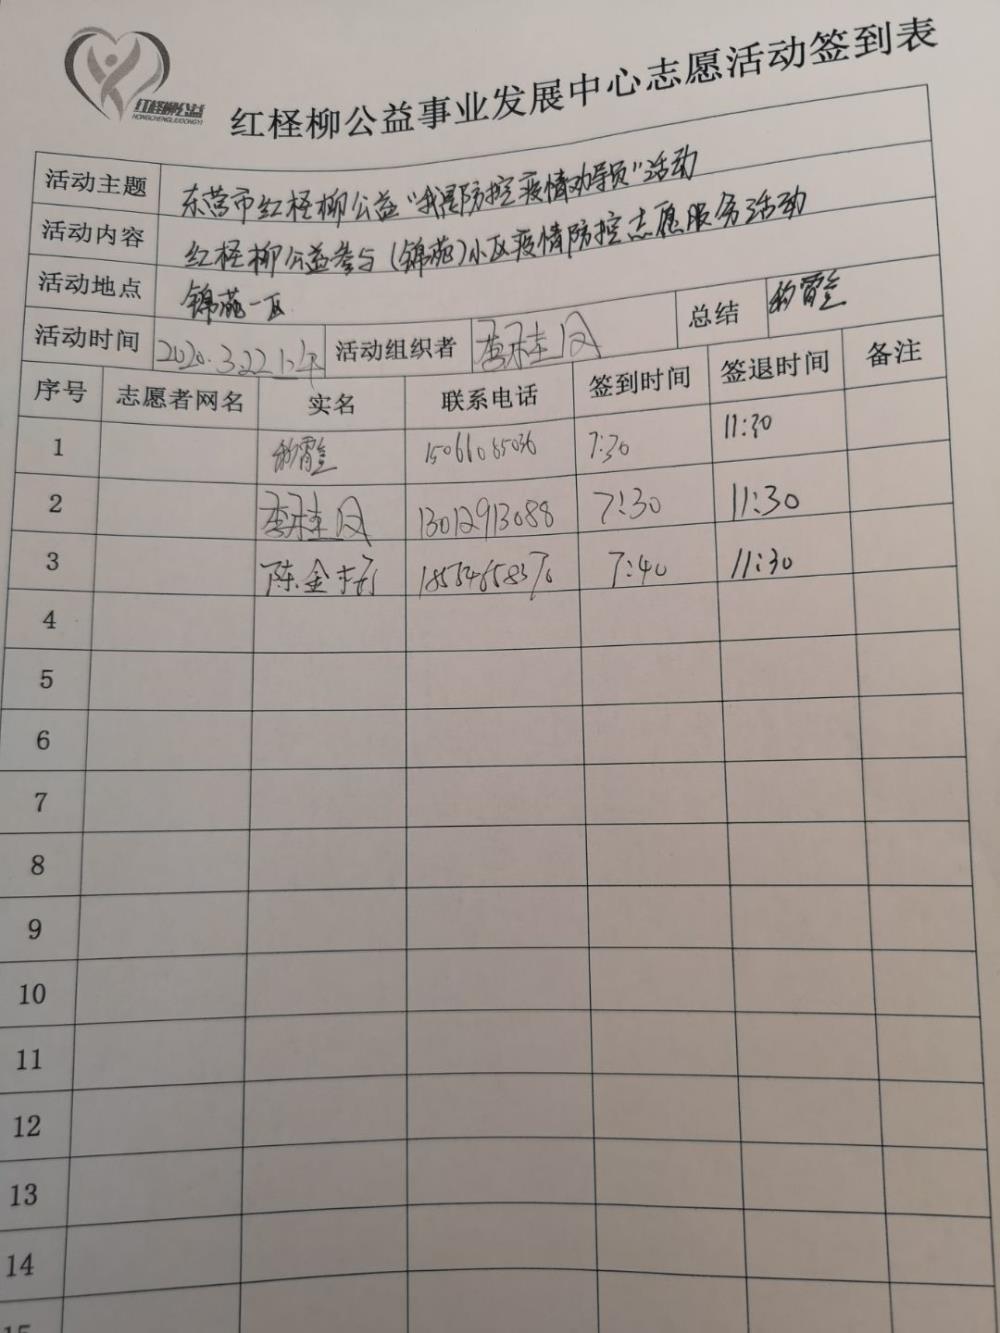 红柽柳公益
HONGCHENGLIUGONGYI
红柽柳公益事业发展中心志愿活动签到表
活动主题 东营市红柽柳公益“我是防控疫情劝导员”活动
活动内容 红柽柳公益参与（锦苑）小区疫情防控志愿服务活动
活动地点 锦苑一区
活动时间 2020.3.22上午 活动组织者 李桂 总结
序号 志愿者网名 实名 联系电话 签到时间 签退时间 备注
1 15066085036 7:30 11:30
2 李桂 13012913088 7:30 11:30
3 陈金 18554658376 7:40 11:30
4
5
6
7
8
9
10
11
12
13
14
15